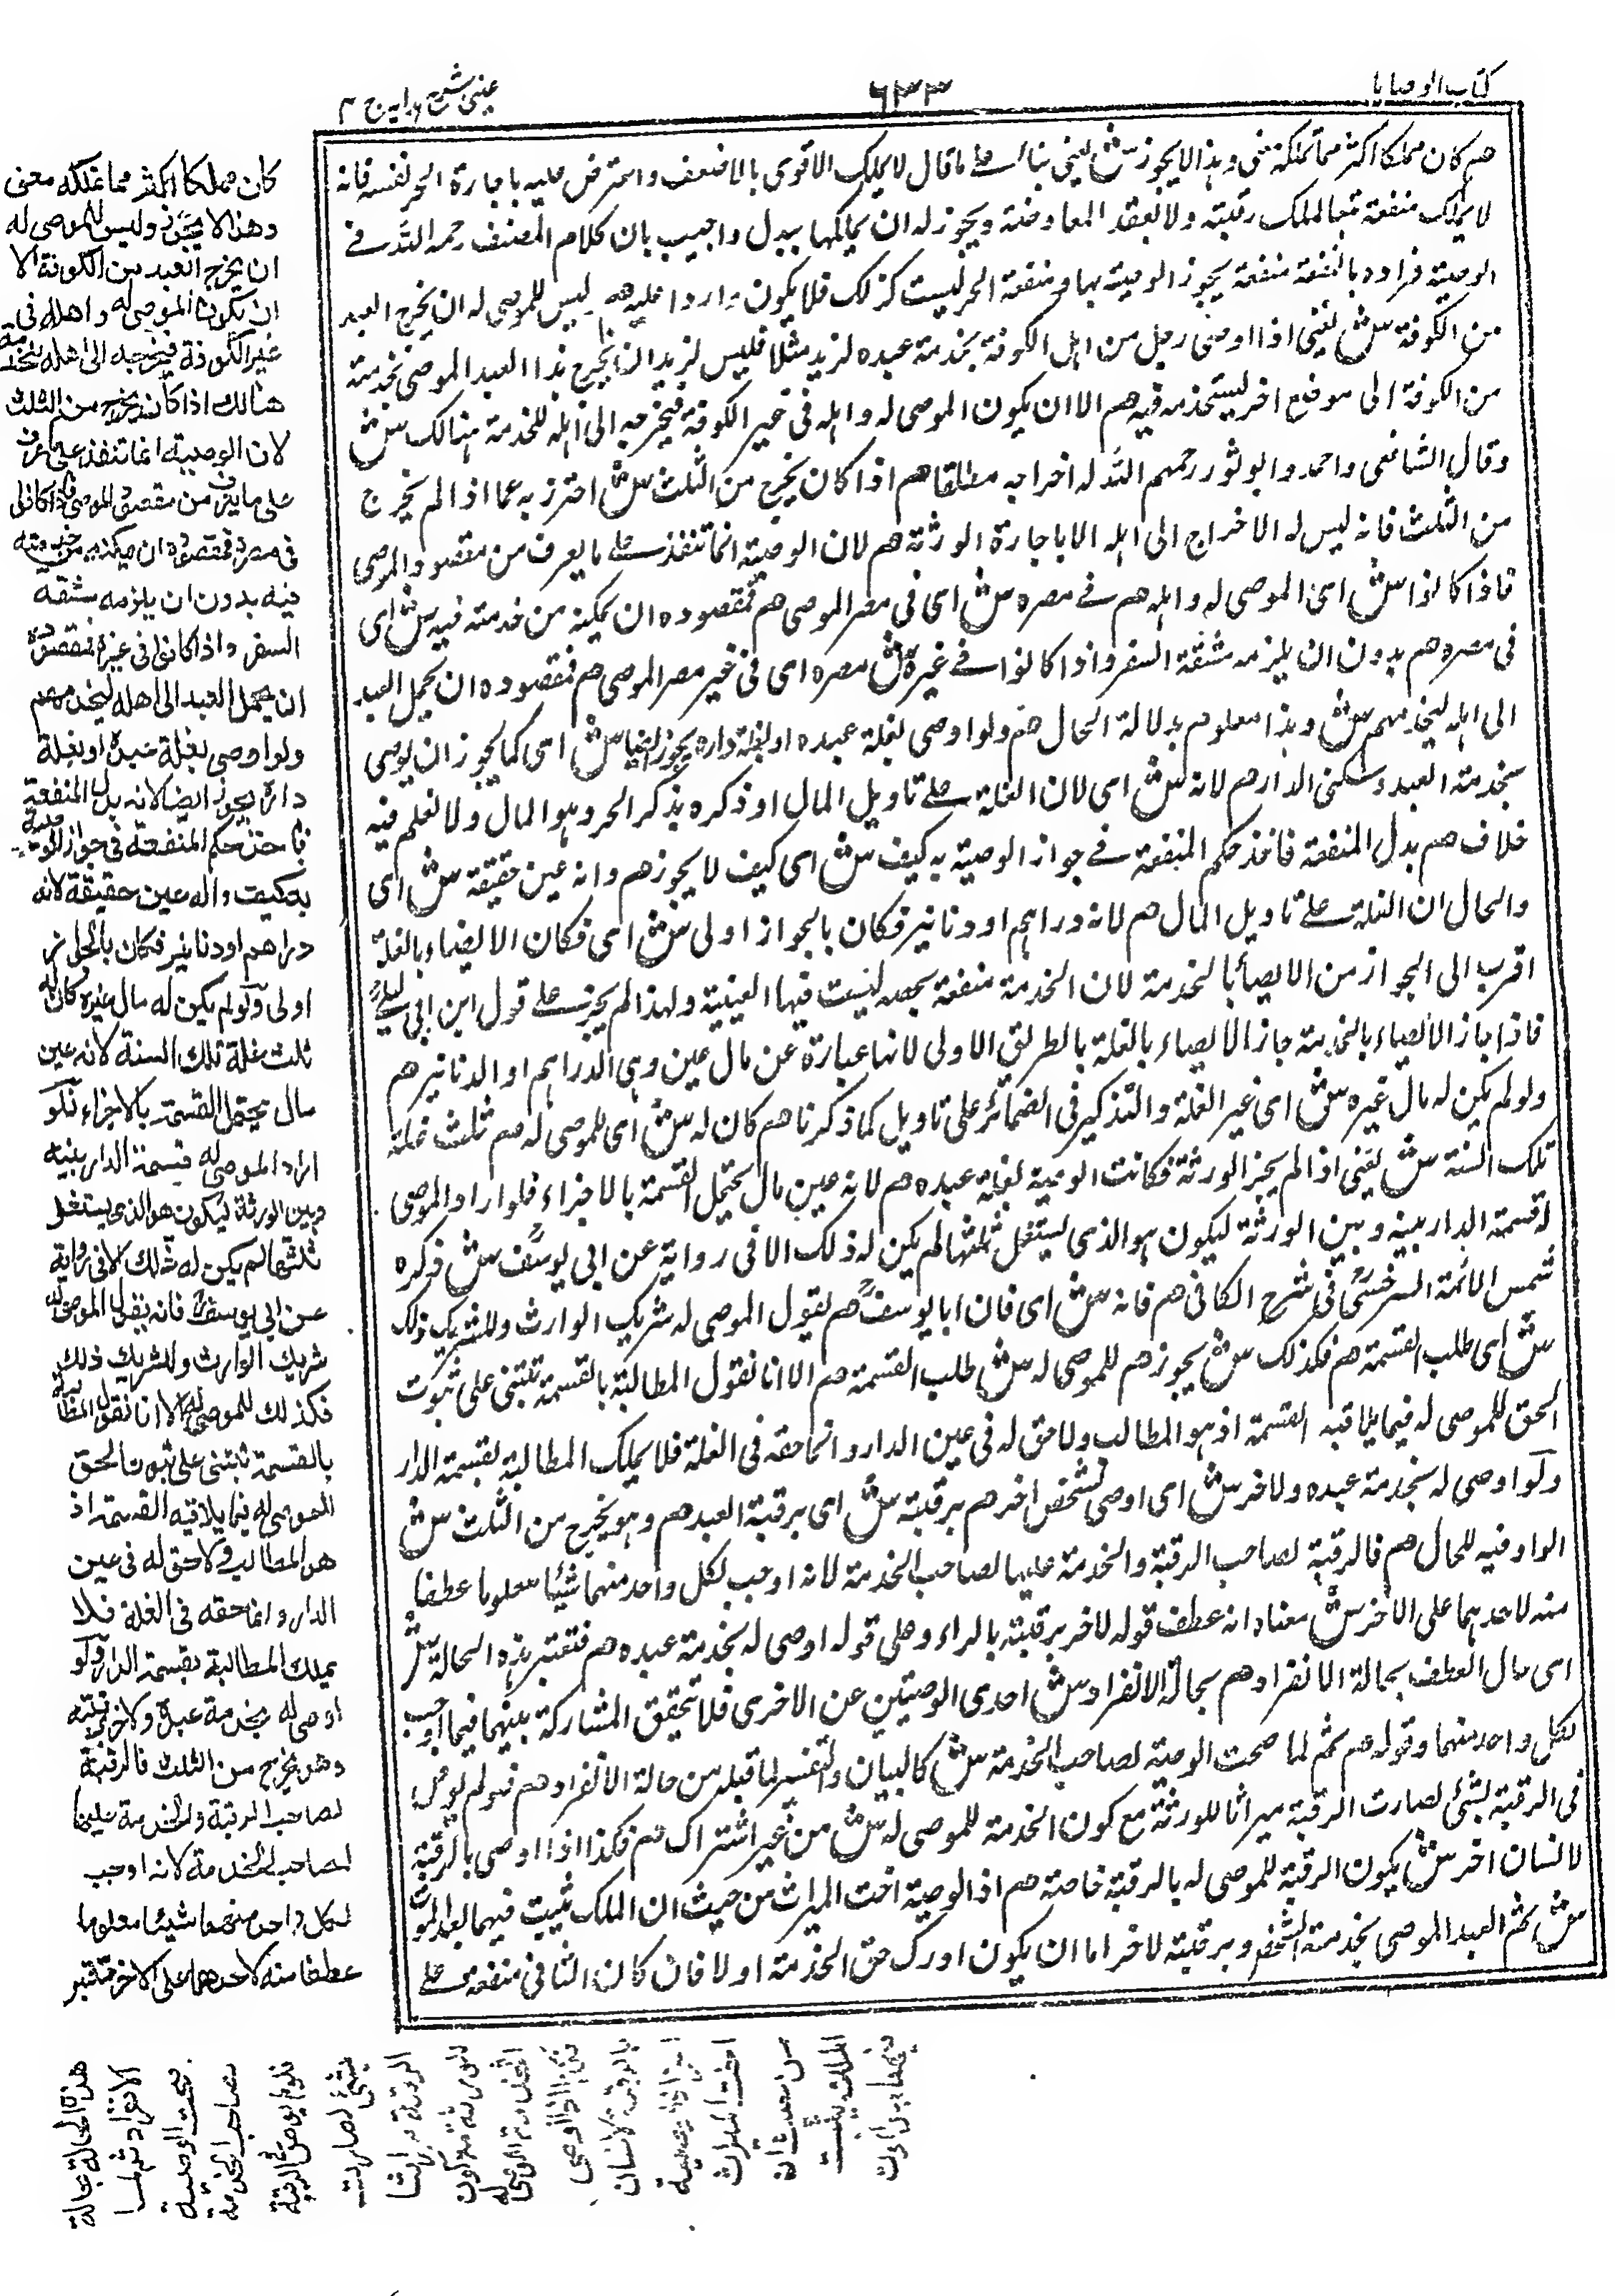 كتاب الوصايا
٦٣٣
عينى شرح هدايه ج ٤
هم كان مملكا اكثر مما تملكه معنى وهذا لا يجوز ش يعنى بناء على ما قال لا يملك الاقوى بالاضعف واعترض عليه باجارة الحر نفسه فانه
لا يملك منفعته تبعا لملك رقبته ولا بعقد المعاوضة ويجوز له ان يملكها ببدل واجيب بان كلام المصنف رحمه الله فى
الوصية فمراده بالمنفعة منفعة يجوز الوصية بها ومنفعة الحر ليست كذلك فلا يكون واردا عليه هم وليس للموصى له ان يخرج العبد
من الكوفة ش يعنى اذا اوصى رجل من اهل الكوفة بخدمة عبده لزيد مثلا فليس لزيد ان يخرج هذا العبد الموصى بخدمته
من الكوفة الى موضع اخر ليستخدمه فيه هم الا ان يكون الموصى له واهله فى غير الكوفة فيخرجه الى اهله للخدمة هنالك ش
وقال الشافعى واحمد وابو ثور رحمهم الله له اخراجه مطلقا هم اذا كان يخرج من الثلث ش احترز به عما اذا لم يخرج
من الثلث فانه ليس له الاخراج الى اهله الا باجارة الورثة هم لان الوصية انما تنفذ على ما يعرف من مقصود الموصى
فاذا كانوا ش اى الموصى له واهله هم فى مصره ش اى فى مصر الموصى هم فمقصوده ان يمكنه من خدمته فيه ش اى
فى مصره هم بدون ان يلزمه مشقة السفر واذا كانوا فى غيره ش مصره اى فى غير مصر الموصى هم فمقصوده ان يحمل العبد
الى اهله ليخدمهم ش وهذا معلوم بدلالة الحال هم ولو اوصى بغلة عبده او بغلة داره يجوز ايضا ش اى كما يجوز ان يوصى
بخدمة العبد وسكنى الدار هم لانه ش اى لان الغلة على تاويل المال او ذكره بذكر الحر وهو المال ولا نعلم فيه
خلاف هم بدل المنفعة فاخذ حكم المنفعة فى جواز الوصية به كيف ش اى كيف لا يجوز هم وانه عين حقيقة ش اى
والحال ان الغلة على تاويل المال هم لانه دراهم او دنانير فكان بالجواز اولى ش اى فكان الايصاء بالغلة
اقرب الى الجواز من الايصاء بالخدمة لان الخدمة منفعة بحصه ليست فيها العينية ولهذا لم يجز على قول ابن ابى ليلى
فاذا جاز الايصاء بالخدمة جاز الايصاء بالغلة بالطريق الاولى لانها عبارة عن مال عين وهى الدراهم او الدنانير هم
ولو لم يكن له مال غيره ش اى غير الغلة والتذكير فى الضمائر على تاويل كما ذكرنا هم كان له ش اى للموصى له هم ثلث غلة
تلك السنة ش يعنى اذا لم يجز الورثة فكانت الوصية بغلة عبده هم لانه عين مال يحتمل القسمة بالاجزاء فلو اراد الموصى
له قسمة الدار بينه وبين الورثة ليكون هو الذى يستغل ثلثها لم يكن له ذلك الا فى رواية عن ابى يوسف ش ذكره
شمس الائمة السرخسى فى شرح الكافى هم فانه ش اى فان ابا يوسف هم يقول الموصى له شريك الوارث وللشريك ذلك
ش اى طلب القسمة هم فكذلك ش يجوز هم للموصى له ش طلب القسمة هم الا انا نقول المطالبة بالقسمة تبتنى على ثبوت
الحق للموصى له فيما يلاقيه القسمة اذ هو المطالب ولا حق له فى عين الدار وانما حقه فى الغلة فلا يملك المطالبة بقسمة الدار
ولو اوصى له بخدمة عبده ولاخر ش اى اوصى لشخص اخر هم برقبته ش اى برقبة العبد هم وهو يخرج من الثلث ش
الواو فيه للحال هم فالرقبة لصاحب الرقبة والخدمة عليها لصاحب الخدمة لانه اوجب لكل واحد منهما شيئا معلوما عطفا
منه لاحدهما على الاخر ش معناه انه عطف قوله لاخر برقبته بالراء وعلى قوله اوصى له بخدمة عبده هم فتعتبر هذه الحالة ش
اى حال العطف بحالة الانفراد هم بحالة الانفراد ش احدى الوصيتين عن الاخرى فلا تتحقق المشاركة بينهما فيما اوجب
لكل واحد منهما وقوله هم ثم لما صحت الوصية لصاحب الخدمة ش كالبيان والتفسير لما قبله من حالة الانفراد هم فلو لم يوص
فى الرقبة بشئ لصارت الرقبة ميراثا للورثة مع كون الخدمة للموصى له ش من غير اشتراك هم فكذا اذا اوصى بالرقبة
لانسان اخر ش يكون الرقبة للموصى له بالرقبة خاصة هم اذ الوصية اخت الميراث من حيث ان الملك يثبت فيهما بعد الموت
ش ثم العبد الموصى بخدمته لشخص وبرقبته لاخر اما ان يكون ادرك حق الخدمة اولا فان كان الثانى منفعته على
كان مملكا اكثر مما تملكه معنى
وهذا لا يجوز وليس للموصى له
ان يخرج العبد من الكوفة الا
ان يكون الموصى له واهله فى
غير الكوفة فيخرجه الى اهله للخدمة
هنالك اذا كان يخرج من الثلث
لان الوصية انما تنفذ على
على ما يعرف من مقصود الموصى فاذا كانوا
فى مصره فمقصوده ان يمكنه من خدمته
فيه بدون ان يلزمه مشقة
السفر واذا كانوا فى غيره فمقصوده
ان يحمل العبد الى اهله ليخدمهم
ولو اوصى بغلة عبده او بغلة
داره يجوز ايضا لانه بدل المنفعة
فاخذ حكم المنفعة فى جواز الوصية
به كيف وانه عين حقيقة لانه
دراهم او دنانير فكان بالجواز
اولى ولو لم يكن له مال غيره كان له
ثلث غلة تلك السنة لانه عين
مال يحتمل القسمة بالاجزاء فلو
اراد الموصى له قسمة الدار بينه
وبين الورثة ليكون هو الذى يستغل
ثلثها لم يكن له ذلك الا فى رواية
عن ابى يوسف فانه يقول الموصى له
شريك الوارث وللشريك ذلك
فكذلك للموصى له الا انا نقول المطالبة
بالقسمة تبتنى على ثبوت الحق
للموصى له فيما يلاقيه القسمة اذ
هو المطالب ولا حق له فى عين
الدار وانما حقه فى الغلة فلا
يملك المطالبة بقسمة الدار ولو
اوصى له بخدمة عبده ولاخر برقبته
وهو يخرج من الثلث فالرقبة
لصاحب الرقبة والخدمة عليها
لصاحب الخدمة لانه اوجب
لكل واحد منهما شيئا معلوما
عطفا منه لاحدهما على الاخر فتعتبر
هذه الحالة بحالة
الانفراد ثم لما
صحت الوصية
لصاحب الخدمة
فلو لم يوص فى الرقبة
بشئ لصارت
الرقبة ميراثا
للورثة مع كون
الخدمة للموصى له
فكذا اذا اوصى
بالرقبة لانسان
اخر اذ الوصية
اخت الميراث
من حيث ان
الملك يثبت
فيهما بعد الموت